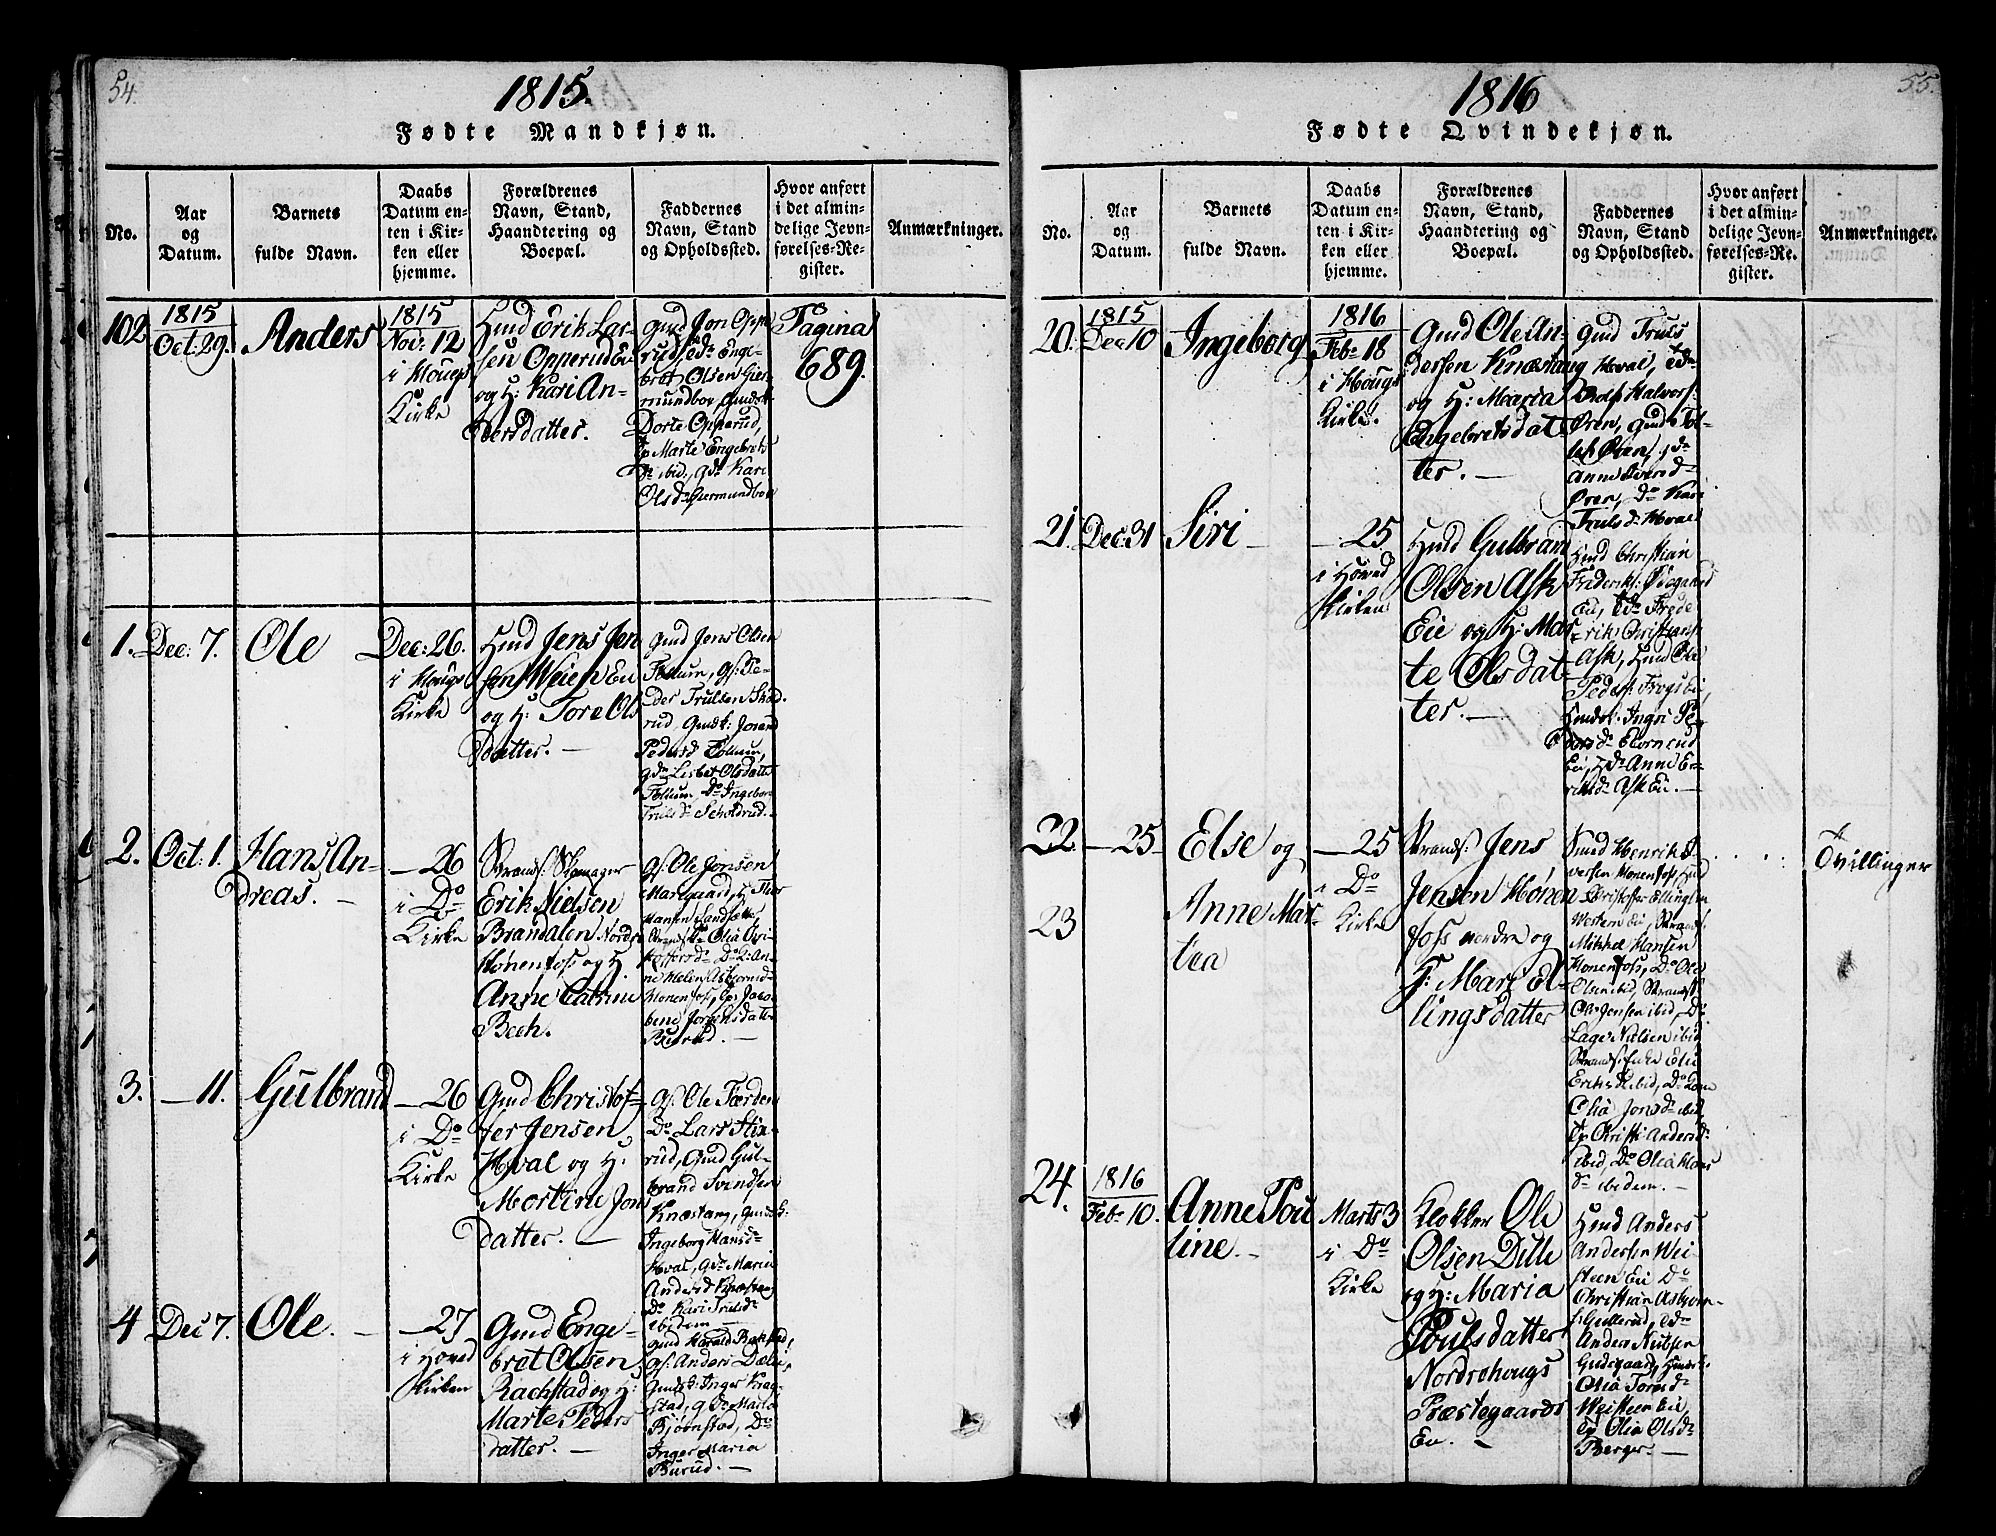 54.
1815.
Fødte Mandkjøn.
No.
Aar
og
Datum.
Barnets
fulde Navn.
Daabs
Datum en-
ten i Kir-
ken eller
hjemme.
Forældrenes
Navn, Stand,
Haandtering og
Boepæl.
Faddernes
Navn, Stand
og Opholdssted.
Hvor anført
i det almin-
delige Jevn-
førelses-Re-
gister.
Anmærkninger.
102
1815
Oct: 29.
Anders
1815
Nov: 12
i Hougs
Kirke
Hmd Erik Lar-
sen Opperud Ei
og H: Kari An-
dersdatter.
Gmd Jon Oppe
rud, do Enge-
bret Olsen Gier-
mundboe, Gmdsk:
Dorte Opperud,
Marte Engebrets
do ibid, gdo Kari
Olsd Giermundboe
Pagina
689.
1.
Dec: 7.
Ole
Dec: 26.
i Hougs
Kirke
Hmd Jens Jen
sen Weien Ei
og H: Tore Ols
datter. —
Gmd Jens Olsen
Follum, Gs: Pe-
der Trulsen Skold
rud, Gmdsk: Joran
Pedersd Follum,
gdo Lisbet Olsdatter
Follum, Do Ingebor
Truls d Scholdrud.
2.
Oct: 1.
Hans An-
dreas. —
— 26
i Do
Kirke
Strands: Skomager
Erik Nielsen
Brandalen Nordre
Hønenfoss og H.
Anne Catrine
Bech.
Gs Ole Jonsen
Hansen
Hønenfoss,
Jørgensdatter
3.
— 11.
Gulbrand
— 26
i Do
Kirke
Gmd Christof-
fer Jensen
Hval og H:
Mortine Jons
datter. —
Gs: Ole Færden
Do Lars Stin-
rud, Gmd Gul-
brand Svendsen
Knæstang, Gmdsk:
Ingeborg Hansd
Hval, gdo Maria
Andersd Knæstang
Do Kari Trulsd
ibidem —
4
Dec 7.
Ole. —
— 27
i Hoved
Kirken
Gmd Enge-
bret Olsen
Rachstad og H:
Marte Peders
datter. —
Gmd Harald Rakstad,
gs: Anders Dæli,
Gmdsk: Inger Krag-
stad, gdo Maria
Bjørnstad, Do
Inger Maria
Burud. —
55.
1816
Fødte Qvindekjøn.
No.
Aar
og
Datum.
Barnets
fulde Navn.
Daabs
Datum en-
ten i Kir-
ken eller
hjemme.
Forældrenes
Navn, Stand,
Haandtering og
Boepæl.
Faddernes
Navn, Stand
og Opholdssted.
Hvor anført
i det almin-
delige Jevn-
førelses-Re-
gister.
Anmærkninger.
20.
1815
Dec 10
Ingeborg
1816
Feb: 18
i Hougs
Kirke.
Gmd Ole An-
dersen Knæstang
og H: Maria
Engebretsdat-
ter. —
Gmd Truls
Hoval,
Halvors:
Øren,
Øren,
Anne
Øren, Do Kari
Trulsd Hoval
21.
Dec: 31
Siri —
— 25
i Hoved
Kirken
Hmd Gulbran
Olsen Ask
Eie og H: Mar-
te Olsdat-
ter. —
Hmd Christian
Frederiks: Øiegaard
Ei, Do Frede
riks Christians
Ask, Hmd Ole
Peders: Frogs Ei,
Hmdsk: Ingri Pe
Biornrud
Ei, do Anne E-
riksd Ask Ei. —
22
— 25
Else og
— 25
i Do
Kirke
Strands: Jens
Jensen Hønen
foss nordre og
H: Mari El-
lingsdatter
Smed Henrik
Hønenfoss, Hmd
Christoffer Ellingsen
Western Ei, Strands:
Mikkel Hansen
Hønenfoss, Do Ole
Olsen ibid, Strands:
Ole Jensen ibid, Do
Lage Nielsen ibid
Eriks ibid, Do
Olia Jonsd ibid,
Christi Andersd
ibid, Do Olia Hans
d ibidem. —
Tvillinger
23
Anne Mar-
tea
24.
1816
Feb: 10.
Anne Pou
line. —
Marts 3
i Do
Kirke
Klokker Ole
Olsen Dille
og H: Maria
Poulsdatter
Nordrehougs
Præstegaards
Ei. —
Hmd Anders
Andersen Wei-
steen Ei Do
Christian Asbiørn-
s: Gullerud, do
Anders Nielsen
Gudsgaard, Hmdsk:
Olia Toresd
Weisteen Ei,
Olia Olsd
Berger —